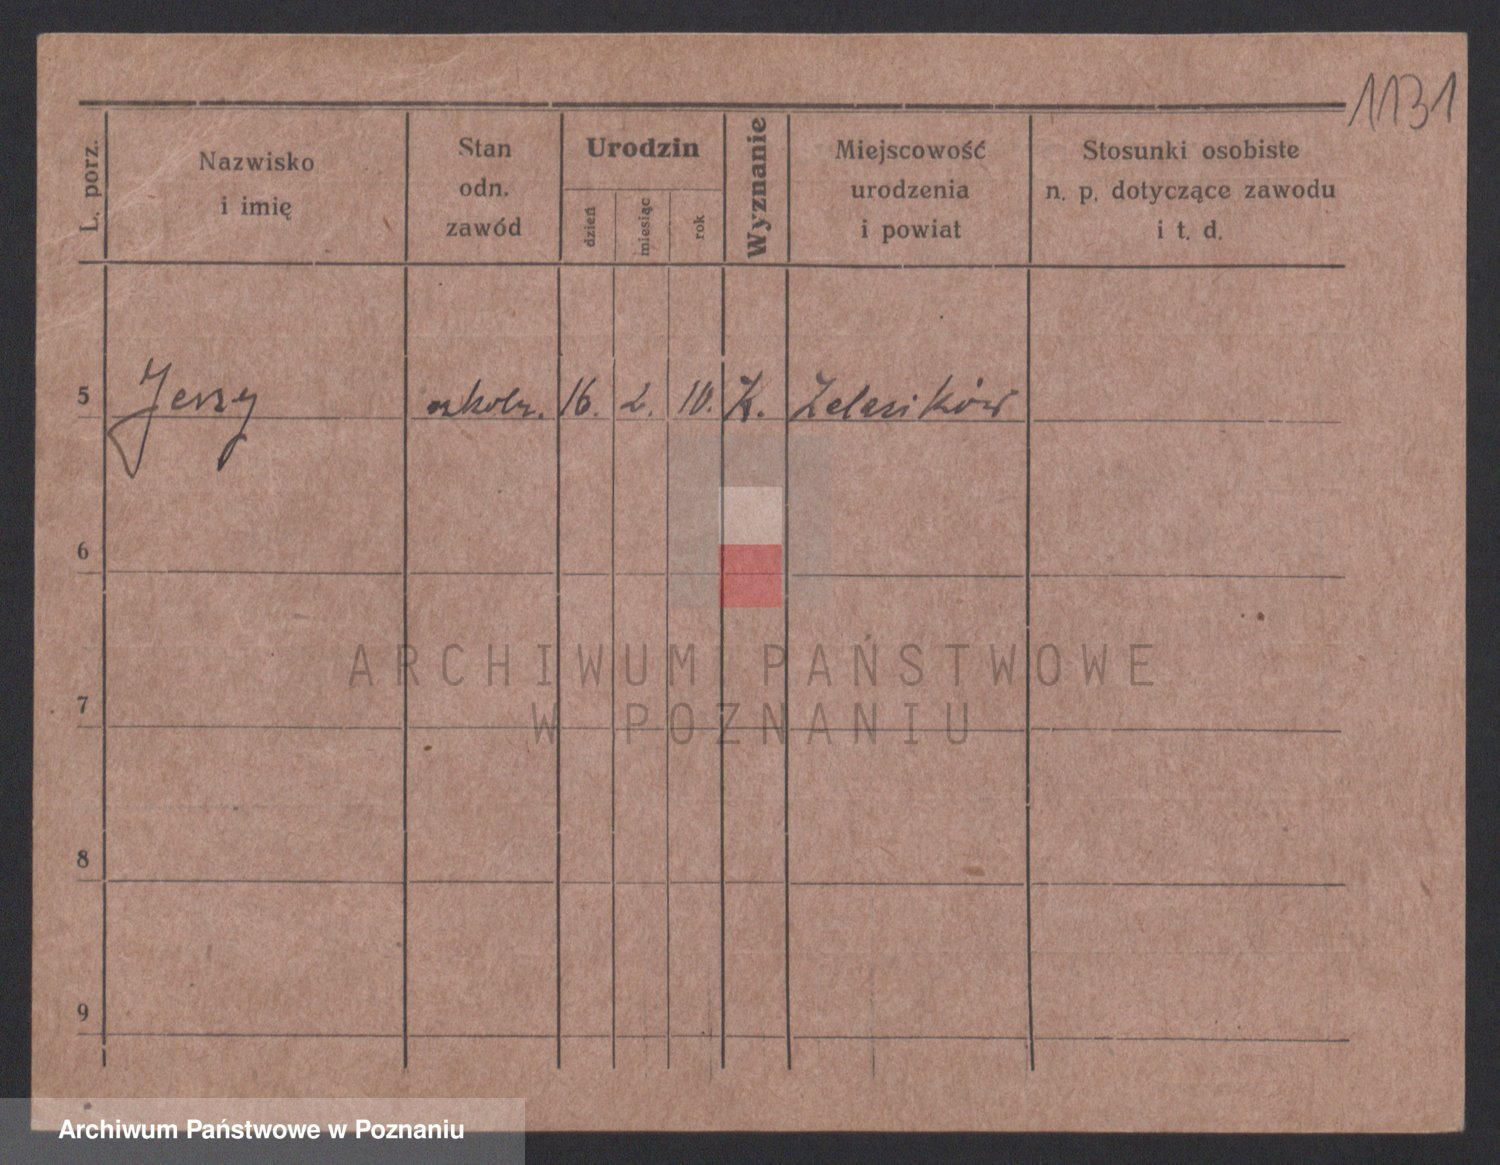 1131
L. porz.
Nazwisko
i imię
Stan
odn.
zawód
Urodzin
dzień
miesiąc
rok
Wyznanie
Miejscowość
urodzenia
i powiat
Stosunki osobiste
n. p. dotyczące zawodu
i t. d.
5 Jerzy 16. 2. 10. K.
6
7
8
9
ARCHIWUM PAŃSTWOWE
W POZNANIU
Archiwum Państwowe w Poznaniu